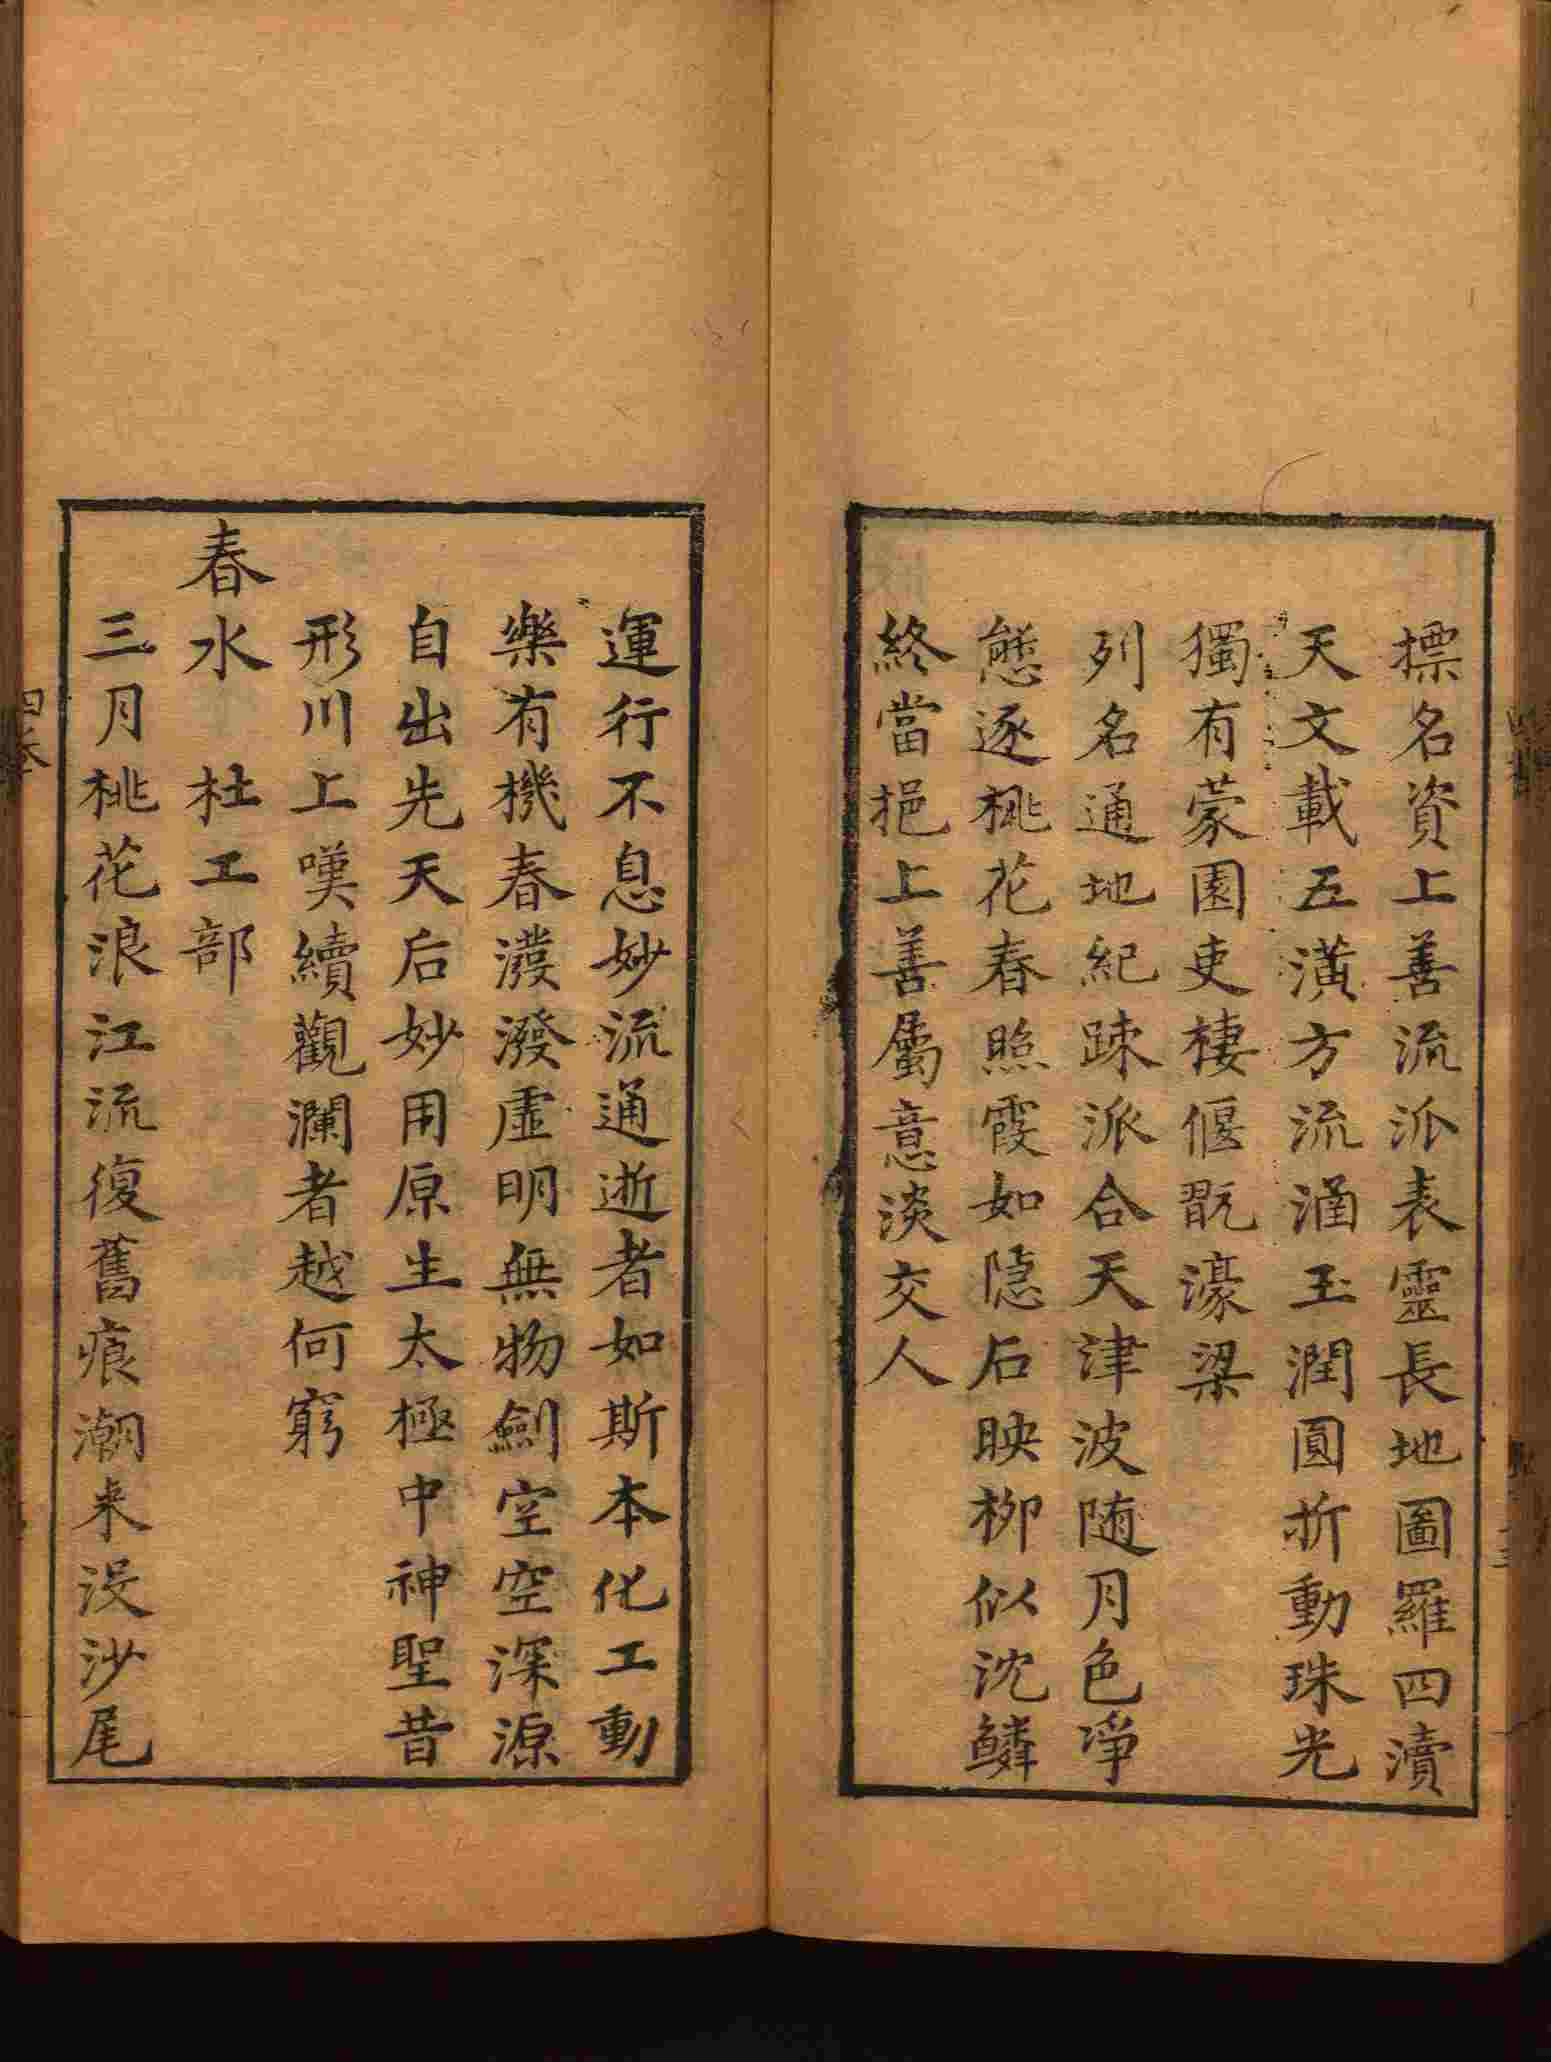 摽名資上善流派表靈長地圖羅四瀆
天文載五潢方流涵玉潤圓折動珠光
獨有蒙園吏棲偃翫濠梁
列名通地紀疎派合天津波随月色凈
態逐桃花春照霞如隠石映柳似沈鱗
終當挹上善屬意淡交人
運行不息妙流通逝者如斯本化工動
樂有機春潑潑虛明無物劍空空深源
自出先天后妙用原生太極中神聖昔
形川上嘆續觀瀾者越何窮
春水 杜工部
三月桃花浪江流復舊痕潮来没沙尾
四卷